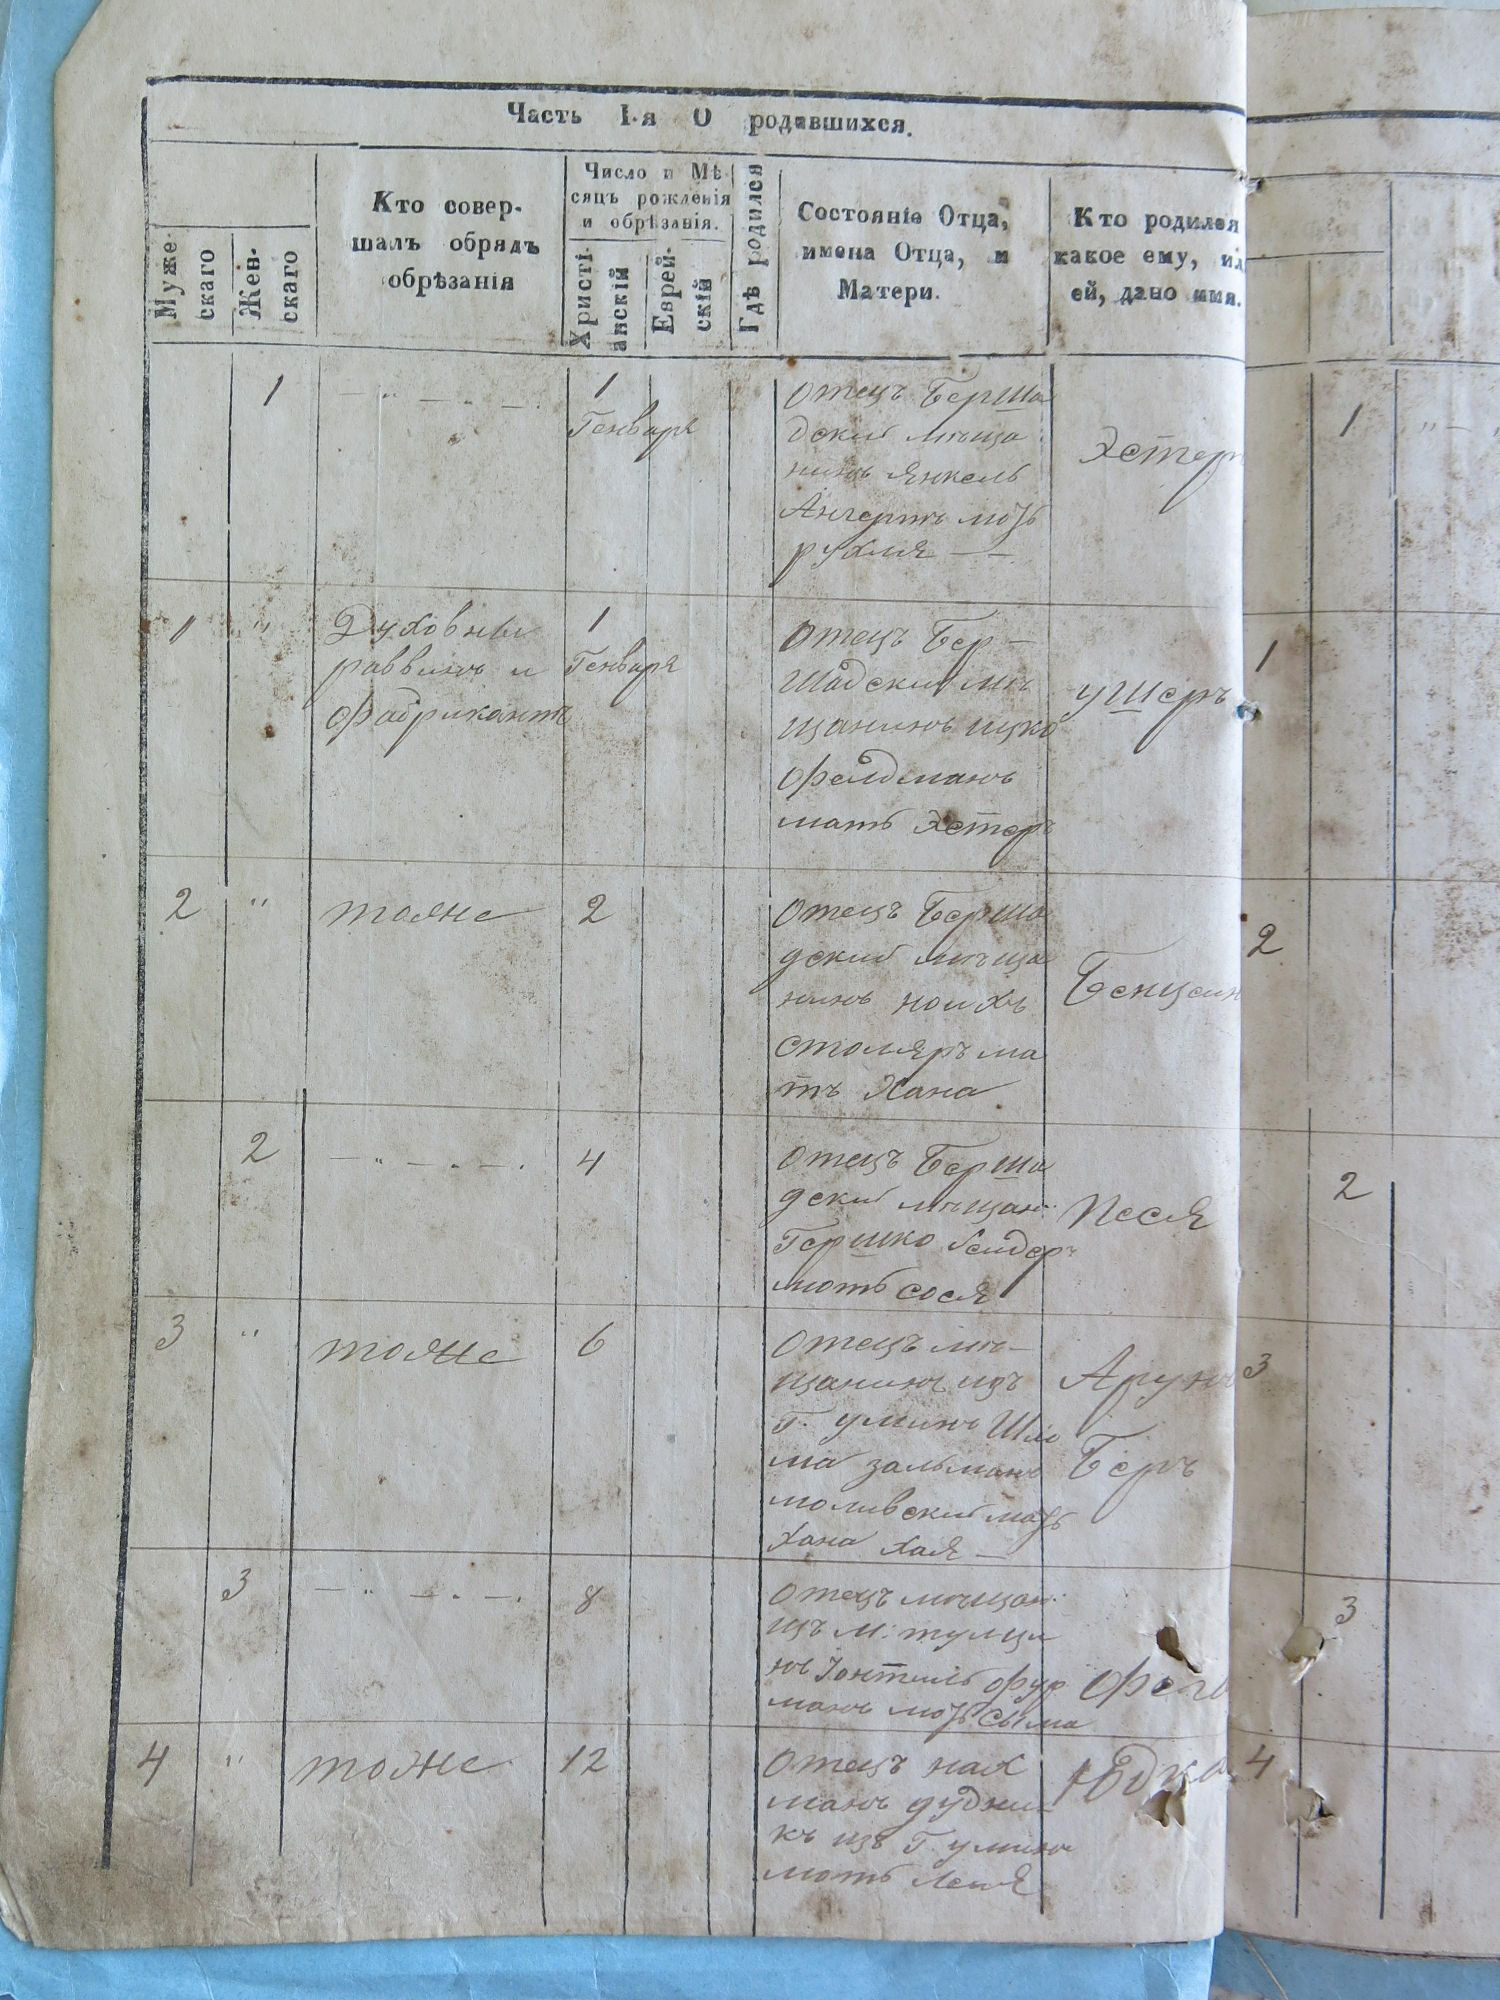 Часть I-я О родившихся.
Мужескаго
Женскаго
Кто совер-
шалъ обрядъ
обрѣзанія
Число и Мѣ-
сяцъ рожденія
и обрѣзанія.
Христі-
анскій
Еврей-
скій
Гдѣ родился
Состояніе Отца,
имена Отца, и
Матери.
Кто родился
какое ему, ил
ей, дано имя.
1
1
Генваря
Отецъ Берша
дский мѣща
нинъ Янкель
мать
рухля
Эстер
1 "
Духовны
раввинъ и
фабрикантъ
1
Генваря
Отецъ Бер-
шадский мѣ
щанинъ ицко
Фелдманъ
мать Эстеръ
ушеръ
2 "
тоже
2
Отецъ Берша
дский мѣща
нинъ ноихъ
столяръ ма
тъ Хана
Бенцеин
2
4
Отецъ Берша
дский мѣщан:
Гершко
мать сося
Песя
3 "
тоже
6
Отецъ мѣ-
щанинъ изъ
Г. уманъ Шло
ма зальманъ
мать
хана хая
Арунъ
Беръ
3
8
Отецъ мѣщан:
изъ м: тулчи
нъ фур
манъ мать сыма
Фейг
4 "
тоже
12
Отецъ нах
манъ дудни-
къ изъ Г. уманъ
мать лея
Юдко
1
1
2
2
3
3
4